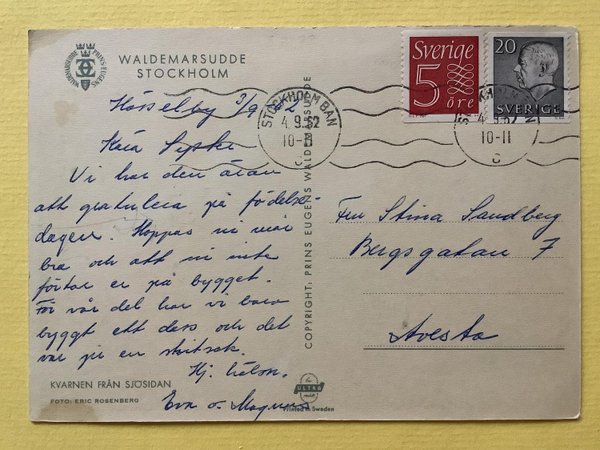 WALDEMARSUDDE
STOCKHOLM
PRINS EUGENS
WALDEMARSUDDE
Sverige
5
öre
20
SVERIGE
STOCKHOLM BAN
4.9.62
10-11
C
4.9.62
10-11
C
Hässelby 3/9
Kära
Vi har den äran
att gratulera på födelse-
dagen. Hoppas ni mår
bra och att ni inte
förtar er på bygget.
För vår del har vi bara
byggt ett dass och det
var ju en skitsak.
Hj. hälsn.
Eva o. Magnus
Fru Stina Sandberg
Bergsgatan 7
Avesta
COPYRIGHT: PRINS EUGENS WALDEMARSUDDE
KVARNEN FRÅN SJÖSIDAN
FOTO: ERIC ROSENBERG
ULTRA
Printed in Sweden